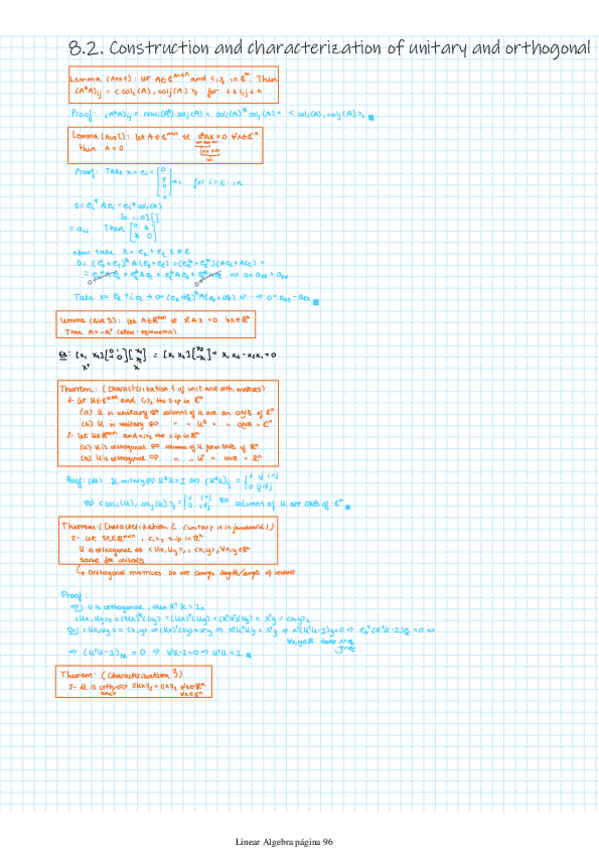 8.2. Construction and characterization of unitary and orthogonal
Lemma (Aux1): let A∈ℂᵐˣⁿ and <,>₂ in ℂᵐ. Then
(A*A)ij = < coli(A), colj(A) >₂ for 1≤i,j≤n
Proof: (A*A)ij = rowi(A*)·colj(A) = coli(A)* colj(A) = < coli(A), colj(A) >₂
Lemma (Aux2): let A∈ℂⁿˣⁿ st x*Ax=0 ∀x∈ℂⁿ
then A=0
Proof: Take x = ei = for i=1...n
0 = ei* A ei = ei* coli(A)
= aii Then
Now take x = ek + eℓ k≠ℓ
0 = (ek+eℓ)* A (ek+eℓ) = (ek*+eℓ*)(Aek+Aeℓ) =
= ek*Aek + ek*Aeℓ + eℓ*Aek + eℓ*Aeℓ ⇒ 0 = akℓ + aℓk
Lemma (Aux 3): let A∈ℝⁿˣⁿ st xᵗAx = 0 ∀x∈ℝⁿ
Then A=-Aᵗ (skew-symmetric)
Theorem: (Characterization 1 of unit and orth. matrices)
1- let U∈ℂⁿˣⁿ and <,>₂ the s.ip in ℂⁿ
(a) U is unitary ⇔ columns of U are an ONB of ℂⁿ
(b) U is unitary ⇔ " " Uᵗ " " ONB " ℂⁿ
2- let U∈ℝⁿˣⁿ and <,>₂ the s ip in ℝⁿ
(a) U is orthogonal ⇔ columns of U form ONB of ℝⁿ
(b) U is orthogonal ⇔ " " Uᵗ " ONB " ℝⁿ
Proof: (1a) U unitary ⇔ U*U = I ⇔ (U*U)ij = { 1 if i=j 0 if i≠j
⇔ < coli(U), colj(U) >₂ = { 1 i=j 0 i≠j ⇔ columns of U are ONB of ℂⁿ
Theorem: (Characterization 2
2- let U∈ℝⁿˣⁿ, <,>₂ s.ip in ℝⁿ
U is orthogonal ⇔ <Ux,Uy>₂ = <x,y>₂ ∀x,y∈ℝⁿ
same for unitary
↳ Orthogonal matrices do not change length/angle of vectors
Proof:
⇒] U is orthogonal, then UᵗU = In
<Ux,Uy>₂ = (Ux)ᵗ(Uy) = (xᵗUᵗ)(Uy) = xᵗy = <x,y>₂
⇒ (UᵗU-I)kℓ = 0 ⇒ UᵗU-I=0 ⇒ UᵗU=I
Theorem: (Characterization 3)
2- U is orth ⇔ ||Ux||₂ = ||x||₂ ∀x∈ℝⁿ
Linear Algebra página 96